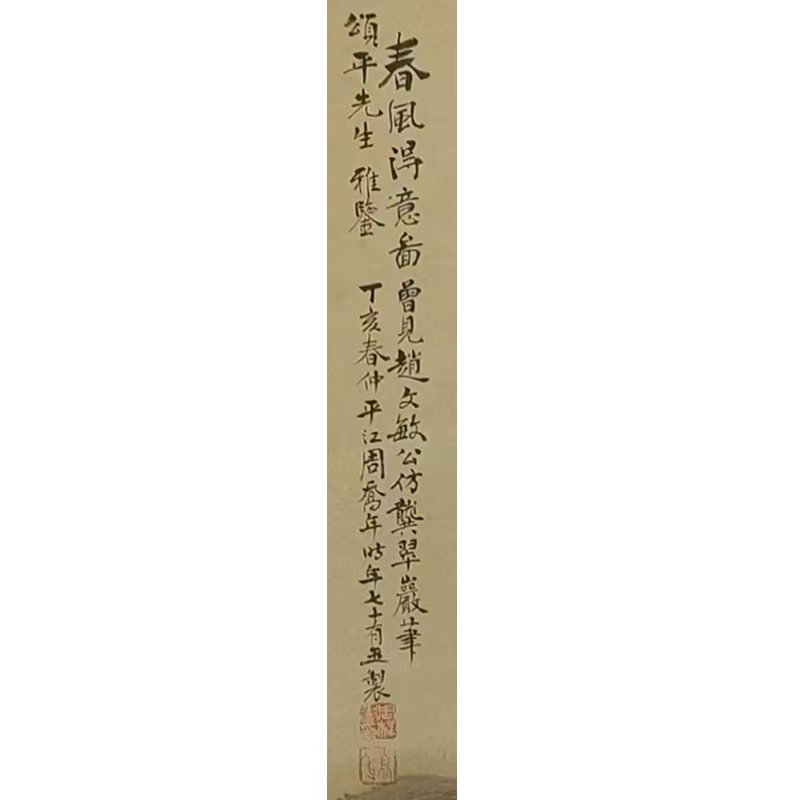 春風淂意啚曾見趙文敏公仿龔翠巖筆
頌平先生雅鑒
丁亥春仲平江周喬年時年七十有五製